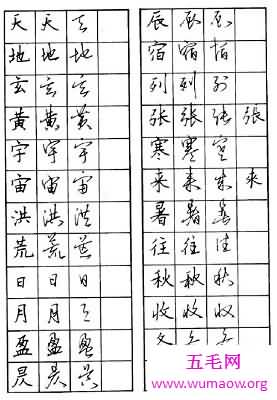 天天天
地地地
玄玄玄
黄黄黄
宇宇宇
宙宙宙
洪洪洪
荒荒荒
日日日
月月月
盈盈盈
昃昃昃
辰辰辰
宿宿宿
列列列
张张张张
寒寒寒
来来来来
暑暑暑
往往往
秋秋秋
收收收
五毛网
www.wumaow.org